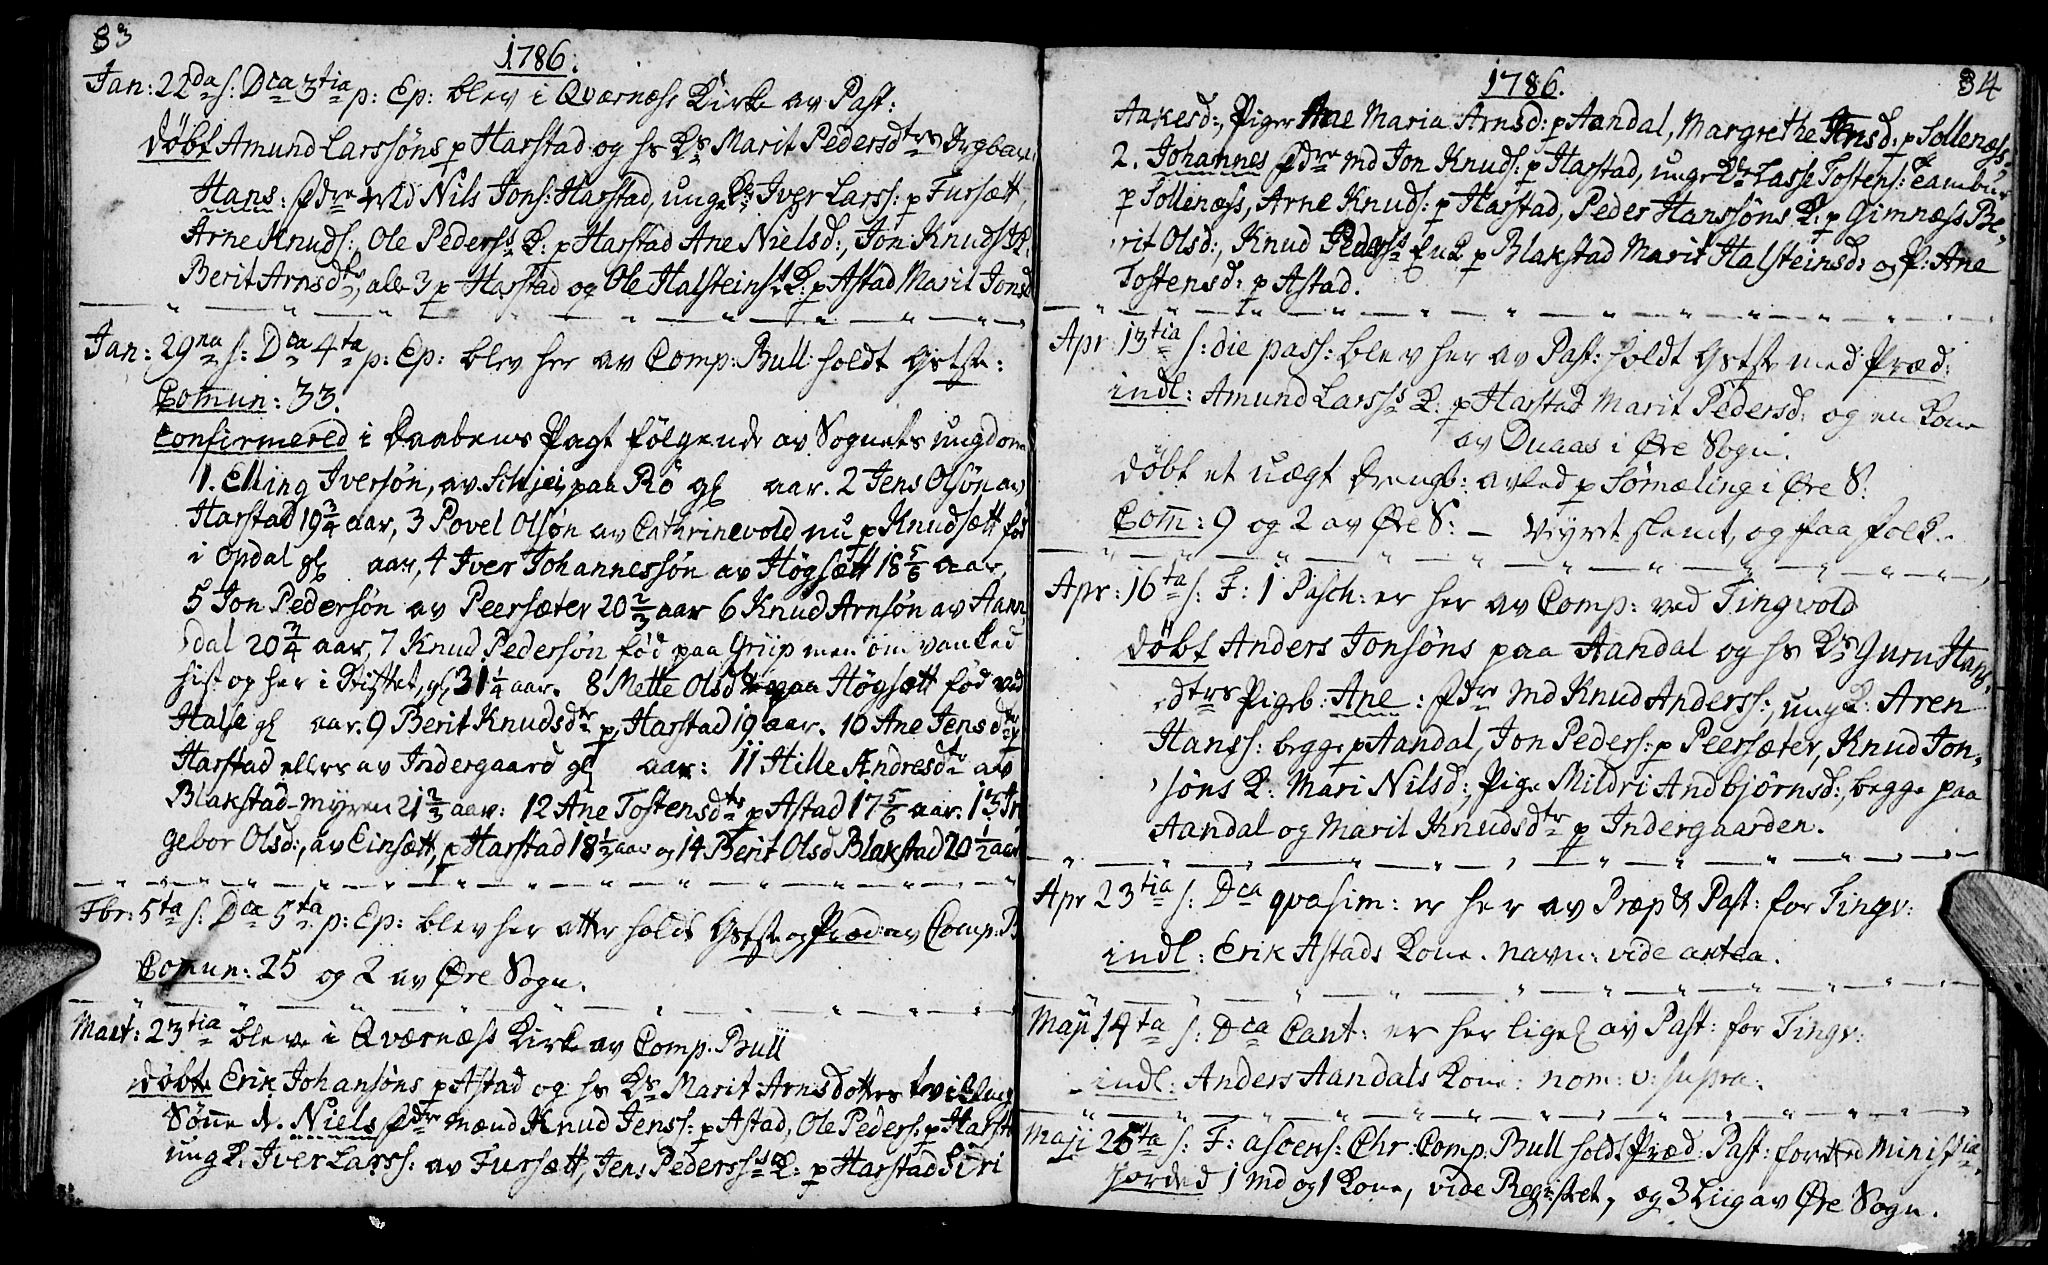 83
1786.
Jan: 22da s: Dca 3tia p: Ep: blev i Qværnæss Kirke av Past:
døbt Amund Larssøns p Harstad og hs Ks Marit Pedersdtrs
Hans: fdre Md Nils Jons: Harstad, ung K: Iver Larss: p Fursætt,
Arne Knuds:, Ole Pederss K: p Harstad Ane Nielsd:, Jon Knuds K:
Berit Arnsdtr, alle 3 p Harstad og Ole Halsteins K: p Astad Marit Jonsd
Jan: 29na s: Dca 4ta p: Ep: blev her av Comp: Bull holdt Gstst:
Comun: 33.
Confirmered i Daabens Pagt følgende av Sognets ungdom
1. Elling Iversøn, av paa Rø gl aar. 2 Jens Olsøn av
Harstad 19 3/4 aar, 3 Povel Olsøn av Cathrinevold nu p Knudsætt fød
i Opdal gl aar, 4 Iver Johannessøn av Høgsætt 18 5/6 aar,
5 Jon Pedersøn av Peersæter 20 2/3 aar 6 Knud Arnsøn av Aann,
dal 20 3/4 aar, 7 Knud Pedersøn fød paa Griip men om vanked
hist og her i Stiftet, gl 31 1/4 aar. 8 Mette Olsd paa Høgsætt fød ved
Halse gl aar. 9 Berit Knudsdtr p Harstad 19 aar. 10 Ane Jensdtr p
Harstad ellers av Indergaard gl aar: 11 Hille Andresdtr av
Blakstad-myren 21 2/3 aar: 12 Ane Tostensdtr p Astad 17 5/6 aar. 13 In
gebor Olsd:, av Einsætt, p Harstad 18 1/2 aar og 14 Berit Olsd Blakstad 20 1/2 aar
Fbr: 5ta s: Dca 5ta p: Ep: blev her atter holdt Gstst og Præd: av Comp: B
Comun: 25 og 2 av Øre Sogn.
Mart: 23tia blev i Qværnæss Kirke av Comp. Bull
døbt Erik Johansøns p Astad og hs Ks Marit Arnsdotters tvilling
Sønne 1. Niels fdre mænd Knud Jenss: p Astad, Ole Peders: p Harst
ung K. Iver Larss: av Fursætt, Jens Pederss K: p Harstad Siri
1786.
84
Aakesd:, Piger Ane Maria Arnsd: p Aandal, Margrethe Arnsd: p Sollenæss.
2. Johannes fdre md Jon Knuds: p Harstad, unge Ke Lasse Tostens:
p Sollenæss, Arne Knuds: p Harstad, Peder Hanssøns K: p Gimnæss Be,
rit Olsd:, Knud Pederss Enk p Blakstad Marit Halsteinsd: og P: Ane
Tostensd: p Astad.
Apr: 13tia s: die pass: blev her av Past: holdt Gstst med Præd:
indl: Amund Larss K: p Harstad Marit Pedersd: og en Kone
av Duaas i Øre Sogn.
døbt et uægt Drengb: avled p Sørnæling i Øre S:
Com: 9 og 2 av Øre S: – Veyret slemt, og faa folk.
Apr: 16ta s: F: 1 Pasch: er her av Comp: ved Tingvold
døbt Anders Jonsøns paa Aandal og hs Ks Guru Hans,
dtrs Pigeb: Ane: fdre Md Knud Anderss:, ung K: Aren
Hanss: begge p Aandal, Jon Peders: p Peersæter, Knud Jon,
søns K: Mari Nilsd:, Pige Mildri Andbjørnsd:, begge paa
Aandal og Marit Knudsdtr p Indergaarden.
Apr 23tia s: Dca qvasim: er her av Præp & Past: for Tingv:
indl: Erik Astads Kone. navn: vide antea.
Maji 14ta s: Dca Cant: er her ligel av Past: for Tingv:
indl: Anders Aandals Kone: nom: v: supra.
Maji 25ta s: F: ascens: Chr: Comp: Bull holdt Præd: Past: forrted Ministia.
jorded 1 md og 1 Kone, vide Registret, og 3 Liig av Øre Sogn.